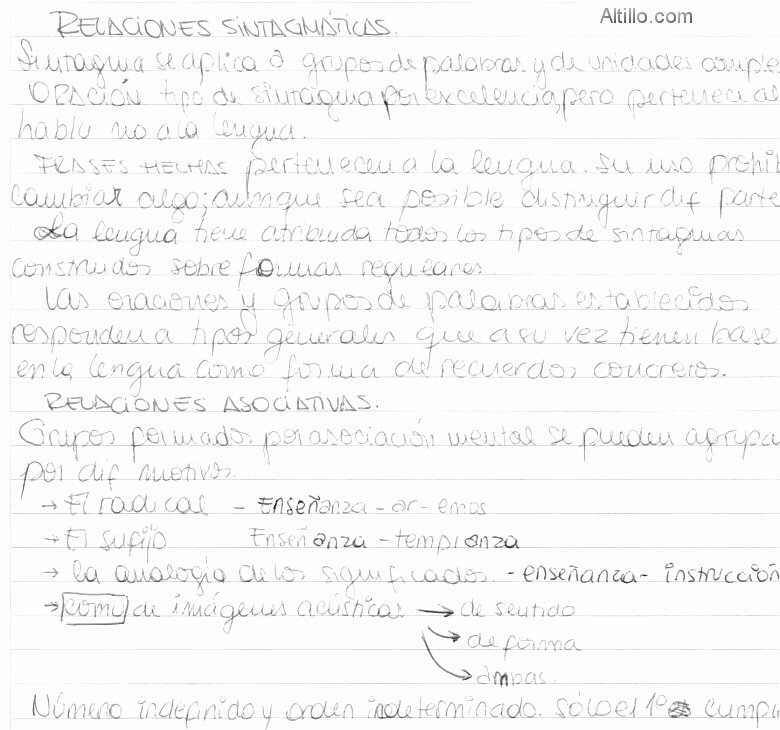 Altillo.com
RELACIONES SINTAGMÁTICAS.
Sintagma se aplica a grupos de palabras y de unidades comple
ORACIÓN tipo de sintagma por excelencia, pero pertenece al
habla no a la lengua.
FRASES HECHAS pertenecen a la lengua. Su uso prohib
cambiar algo; aunque sea posible distinguir dif parte
La lengua tiene atribuida todos los tipos de sintagmas
construidos sobre formas regulares.
Las oraciones y grupos de palabras establecidos
responden a tipos generales que a su vez tienen base
en la lengua como forma de recuerdos concretos.
RELACIONES ASOCIATIVAS.
Grupos formados por asociación mental se pueden agrupa
por dif motivos.
→ El radical - Enseñanza - ar - emos
→ El sufijo Enseñanza - templanza
→ la analogía de los significados - enseñanza - instrucción
→ comu de imágenes acústicas → de sentido
→ de forma
→ ambas.
Número indefinido y orden indeterminado. Sólo el 1º cumpl